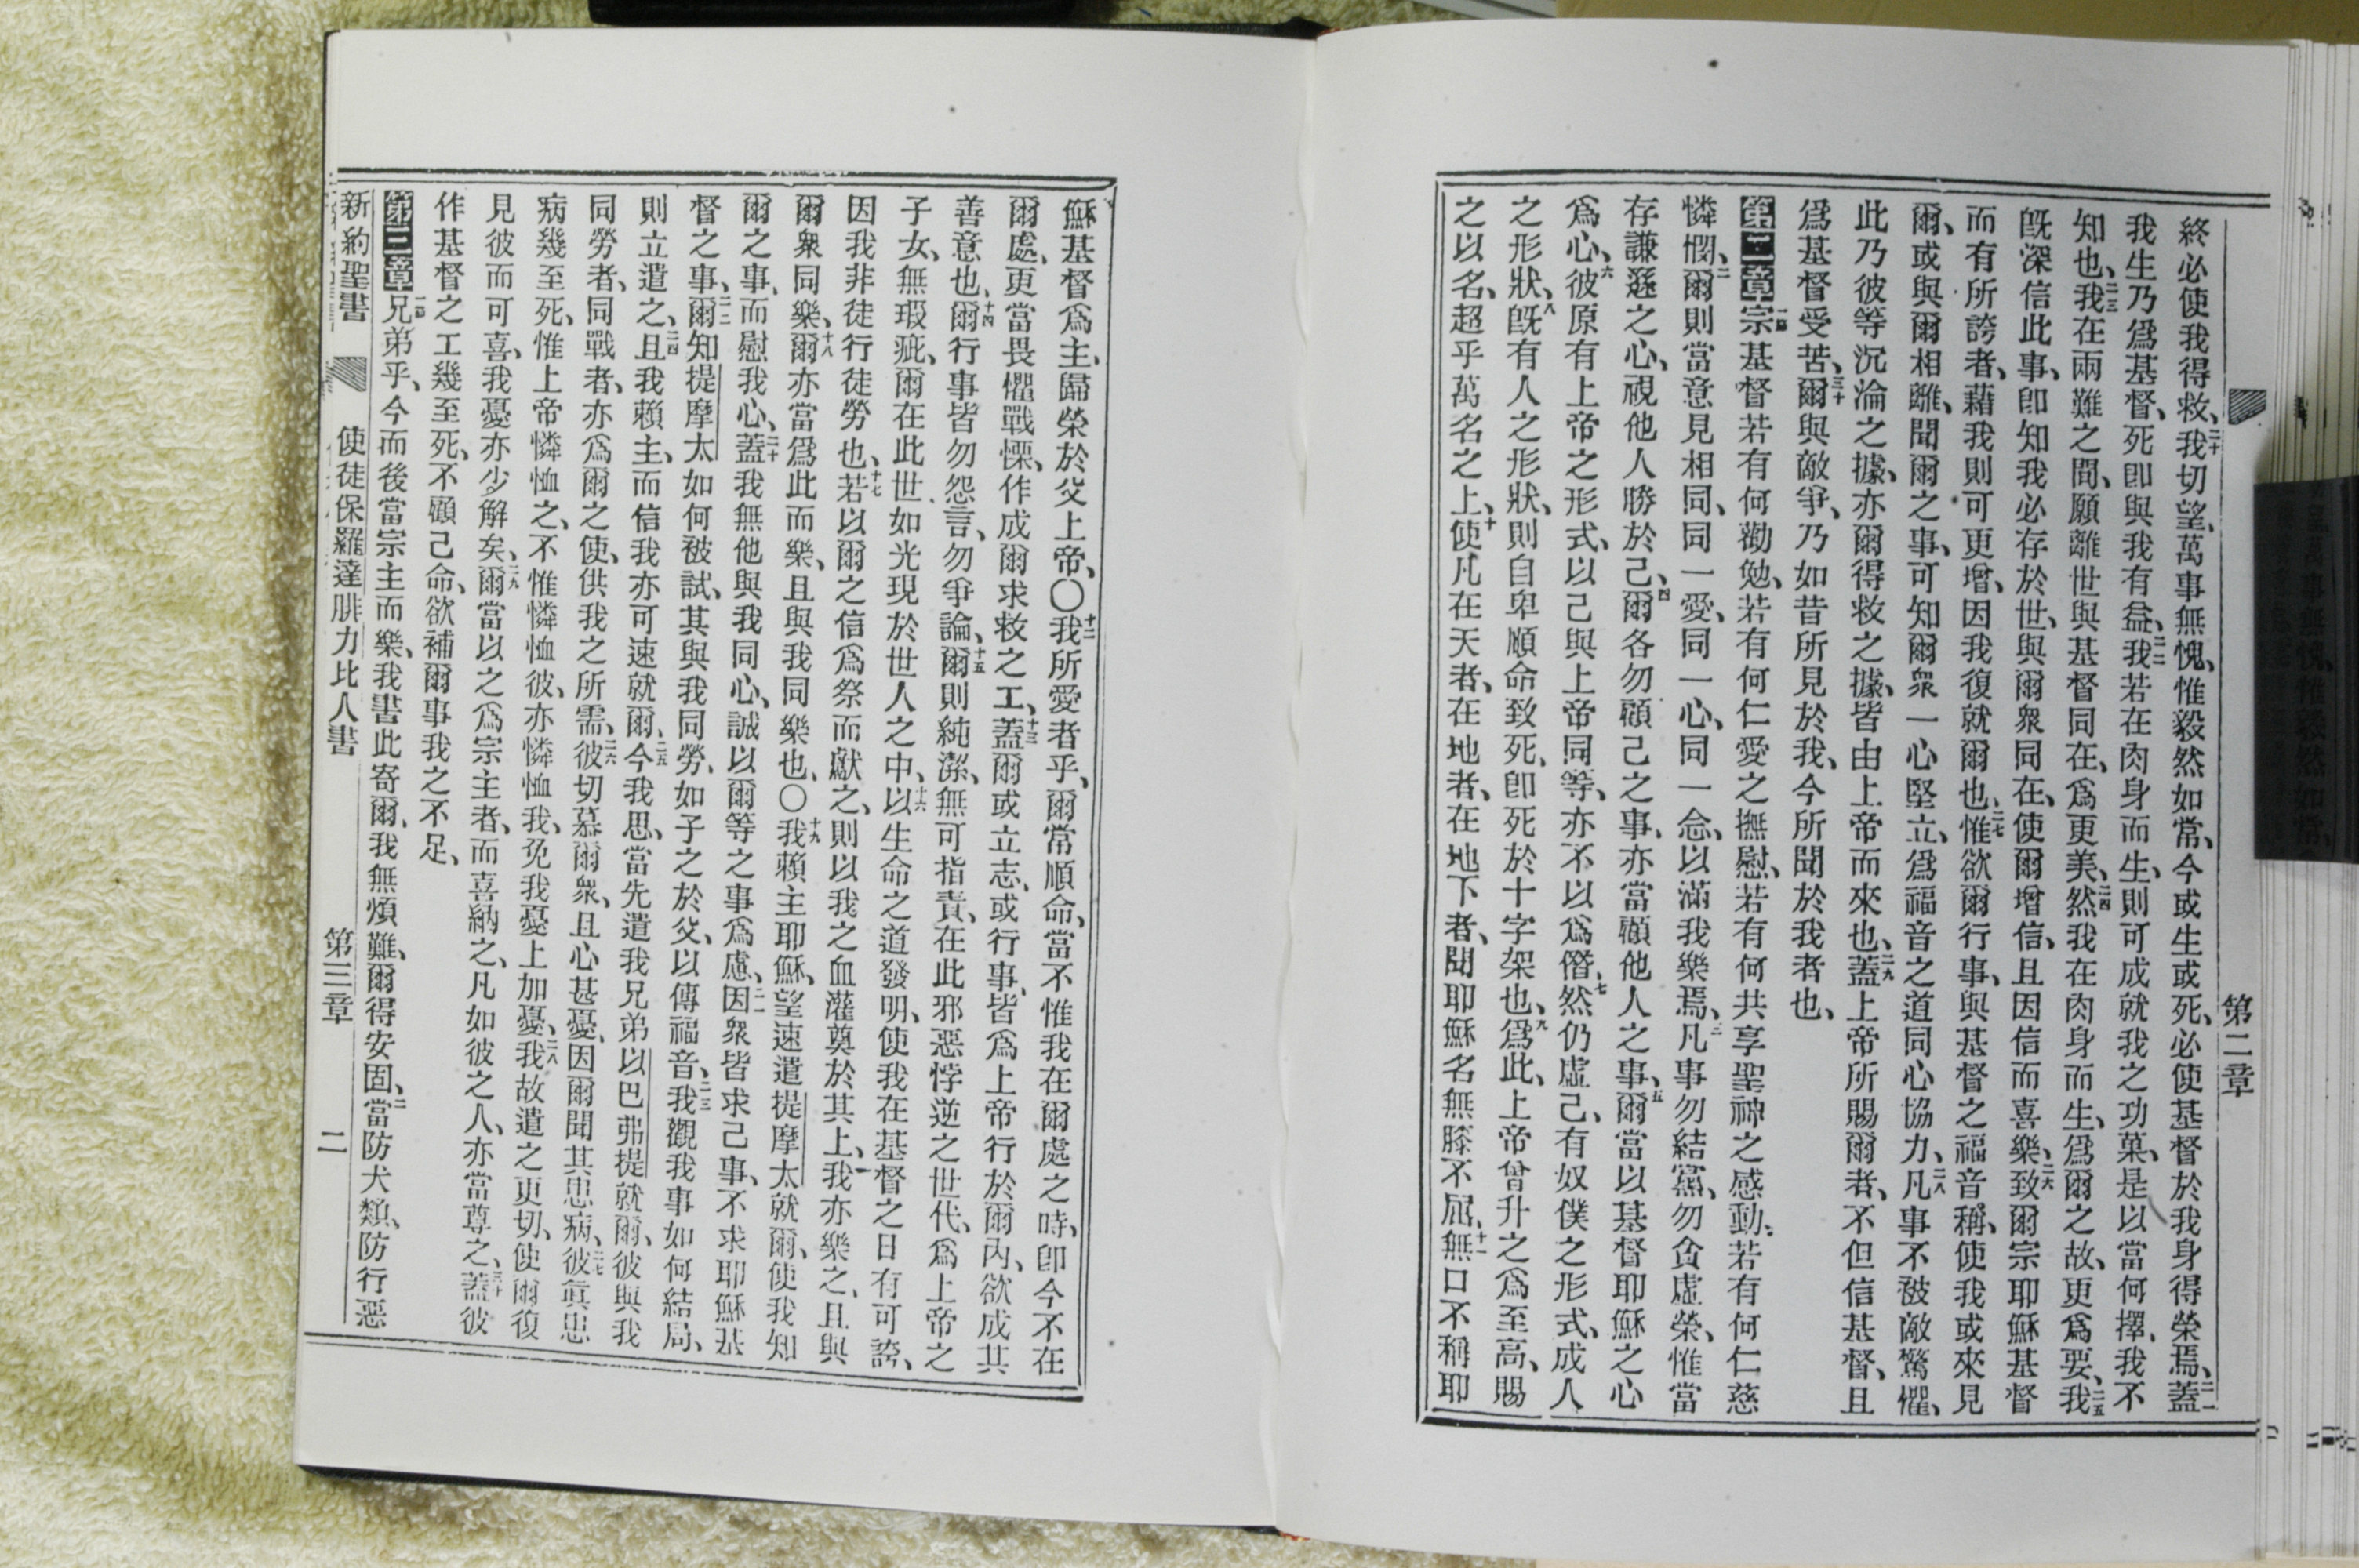 第二章
終必使我得救、二十我切望、萬事無愧、惟毅然如常、今或生或死、必使基督於我身得榮焉、二一蓋
我生乃爲基督、死卽與我有益、二二我若在肉身而生、則可成就我之功菓、是以當何擇、我不
知也、二三我在兩難之間、願離世與基督同在、爲更美、二四然我在肉身而生、爲爾之故、更爲要、二五我
旣深信此事、卽知我必存於世、與爾衆同在、使爾增信、且因信而喜樂、二六致爾宗耶穌基督
而有所誇者、藉我則可更增、因我復就爾也、二七惟欲爾行事、與基督之福音稱、使我或來見
爾、或與爾相離、聞爾之事、可知爾衆一心堅立、爲福音之道同心協力、二八凡事不被敵驚懼、
此乃彼等沉淪之據、亦爾得救之據、皆由上帝而來也、二九蓋上帝所賜爾者、不但信基督、且
爲基督受苦、三十爾與敵爭、乃如昔所見於我、今所聞於我者也、
第二章一節宗基督若有何勸勉、若有何仁愛之撫慰、若有何共享聖神之感動、若有何仁慈
憐憫、二爾則當意見相同、同一愛、同一心、同一念、以滿我樂焉、三凡事勿結黨、勿貪虛榮、惟當
存謙遜之心、視他人勝於己、四爾各勿顧己之事、亦當顧他人之事、五爾當以基督耶穌之心
爲心、六彼原有上帝之形式、以己與上帝同等、亦不以爲僭、七然仍虛己、有奴僕之形式、成人
之形狀、八旣有人之形狀、則自卑順命致死、卽死於十字架也、九爲此、上帝曾升之爲至高、賜
之以名、超乎萬名之上、十使凡在天者、在地者、在地下者、聞耶穌名無膝不屈、十一無口不稱耶
穌基督爲主、歸榮於父上帝、〇十二我所愛者乎、爾常順命、當不惟我在爾處之時、卽今不在
爾處、更當畏懼戰慄、作成爾求救之工、十三蓋爾或立志、或行事、皆爲上帝行於爾內、欲成其
善意也、十四爾行事皆勿怨言、勿爭論、十五爾則純潔、無可指責、在此邪惡悖逆之世代、爲上帝之
子女、無瑕疵、爾在此世、如光現於世人之中、十六以生命之道發明、使我在基督之日有可誇、
因我非徒行徒勞也、十七若以爾之信爲祭而獻之、則以我之血灌奠於其上、我亦樂之、且與
爾衆同樂、十八爾亦當爲此而樂、且與我同樂也、〇十九我賴主耶穌、望速遣提摩太就爾、使我知
爾之事、而慰我心、二十蓋我無他與我同心、誠以爾等之事爲慮、二一因衆皆求己事、不求耶穌基
督之事、二二爾知提摩太如何被試、其與我同勞、如子之於父、以傳福音、二三我觀我事如何結局、
則立遣之、二四且我賴主、而信我亦可速就爾、二五今我思、當先遣我兄弟以巴弗提就爾、彼與我
同勞者、同戰者、亦爲爾之使、供我之所需、二六彼切慕爾衆、且心甚憂、因爾聞其患病、二七彼眞患
病幾至死、惟上帝憐恤之、不惟憐恤彼、亦憐恤我、免我憂上加憂、二八我故遣之更切、使爾復
見彼而可喜、我憂亦少解矣、二九爾當以之爲宗主者、而喜納之、凡如彼之人、亦當尊之、三十蓋彼
作基督之工幾至死、不顧己命、欲補爾事我之不足、
第三章一節兄弟乎、今而後當宗主而樂、我書此寄爾、我無煩難、爾得安固、二當防犬類、防行惡
新約聖書 使徒保羅達腓力比人書 第三章 二